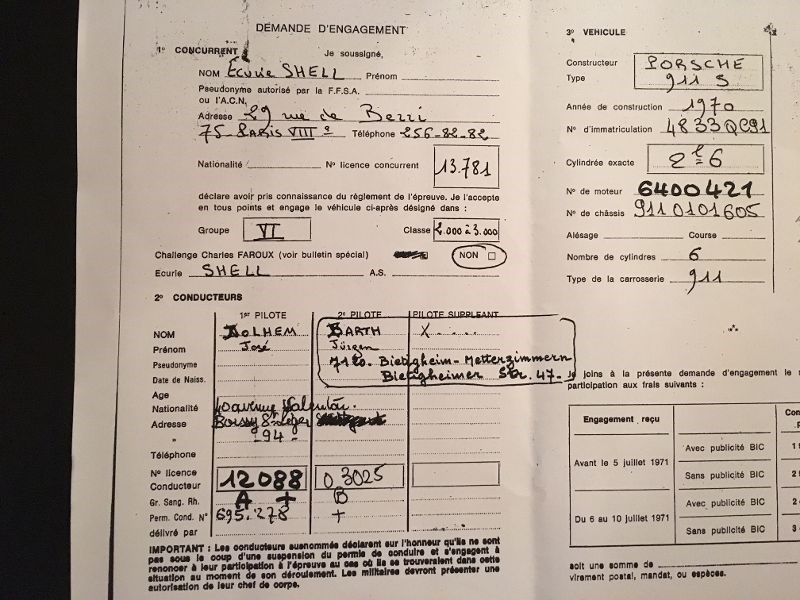 DEMANDE D'ENGAGEMENT
1° CONCURRENT
Je soussigné,
NOM Écurie SHELL Prénom
Pseudonyme autorisé par la F.F.S.A.
ou l'A.C.N,
Adresse 29 rue de Berri
75 - PARIS VIII e Téléphone 256-82-82
Nationalité N° licence concurrent 13.781
déclare avoir pris connaissance du réglement de l'épreuve. Je l'accepte
en tous points et engage le véhicule ci-après désigné dans :
Groupe VI Classe 2.000 à 3.000
Challenge Charles FAROUX (voir bulletin spécial) NON
Ecurie SHELL A.S.
2° CONDUCTEURS
1er PILOTE 2e PILOTE PILOTE SUPPLEANT
NOM DOLHEM BARTH X
Prénom José Jürgen
Pseudonyme 7120. Bietigheim-Metterzimmern
Date de Naiss. Bietigheimer Str. 47-
Age
Nationalité 10 avenue
Adresse Boissy St Léger
" -94-
Téléphone
N° licence
Conducteur 12088 03025
Gr. Sang. Rh. A + B
Perm. Cond. N° 695.278 +
délivré par
IMPORTANT : Les conducteurs susnommés déclarent sur l'honneur qu'ils ne sont
pas sous le coup d'une suspension du permis de conduire et s'engagent à
renoncer à leur participation à l'épreuve au cas où ils se trouveraient dans cette
situation au moment de son déroulement. Les militaires devront présenter une
autorisation de leur chef de corps.
3° VEHICULE
Constructeur PORSCHE
Type 911 S
Année de construction 1970
N° d'immatriculation 4833QC91
Cylindrée exacte 2 l 6
N° de moteur 6400421
N° de châssis 9110101605
Alésage Course
Nombre de cylindres 6
Type de la carrosserie 911
Je joins à la présente demande d'engagement le
participation aux frais suivants :
Engagement reçu
Avant le 5 juillet 1971
Avec publicité BIC
Sans publicité BIC
Du 6 au 10 juillet 1971
Avec publicité BIC
Sans publicité BIC
soit une somme de
virement postal, mandat, ou espèces.